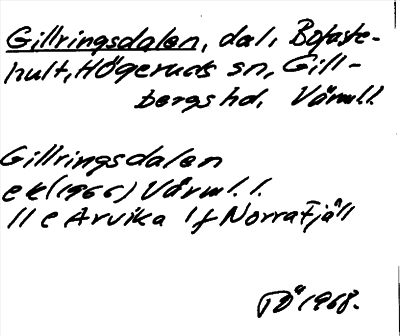 Gillringsdalen, dal, Bofaste-
hult, Högeruds sn, Gill-
bergs hd, Värml.
Gillringsdalen
ek (1966) Värml. l.
11 e Arvika 1 f Norra Fjäll
PÖ 1968.